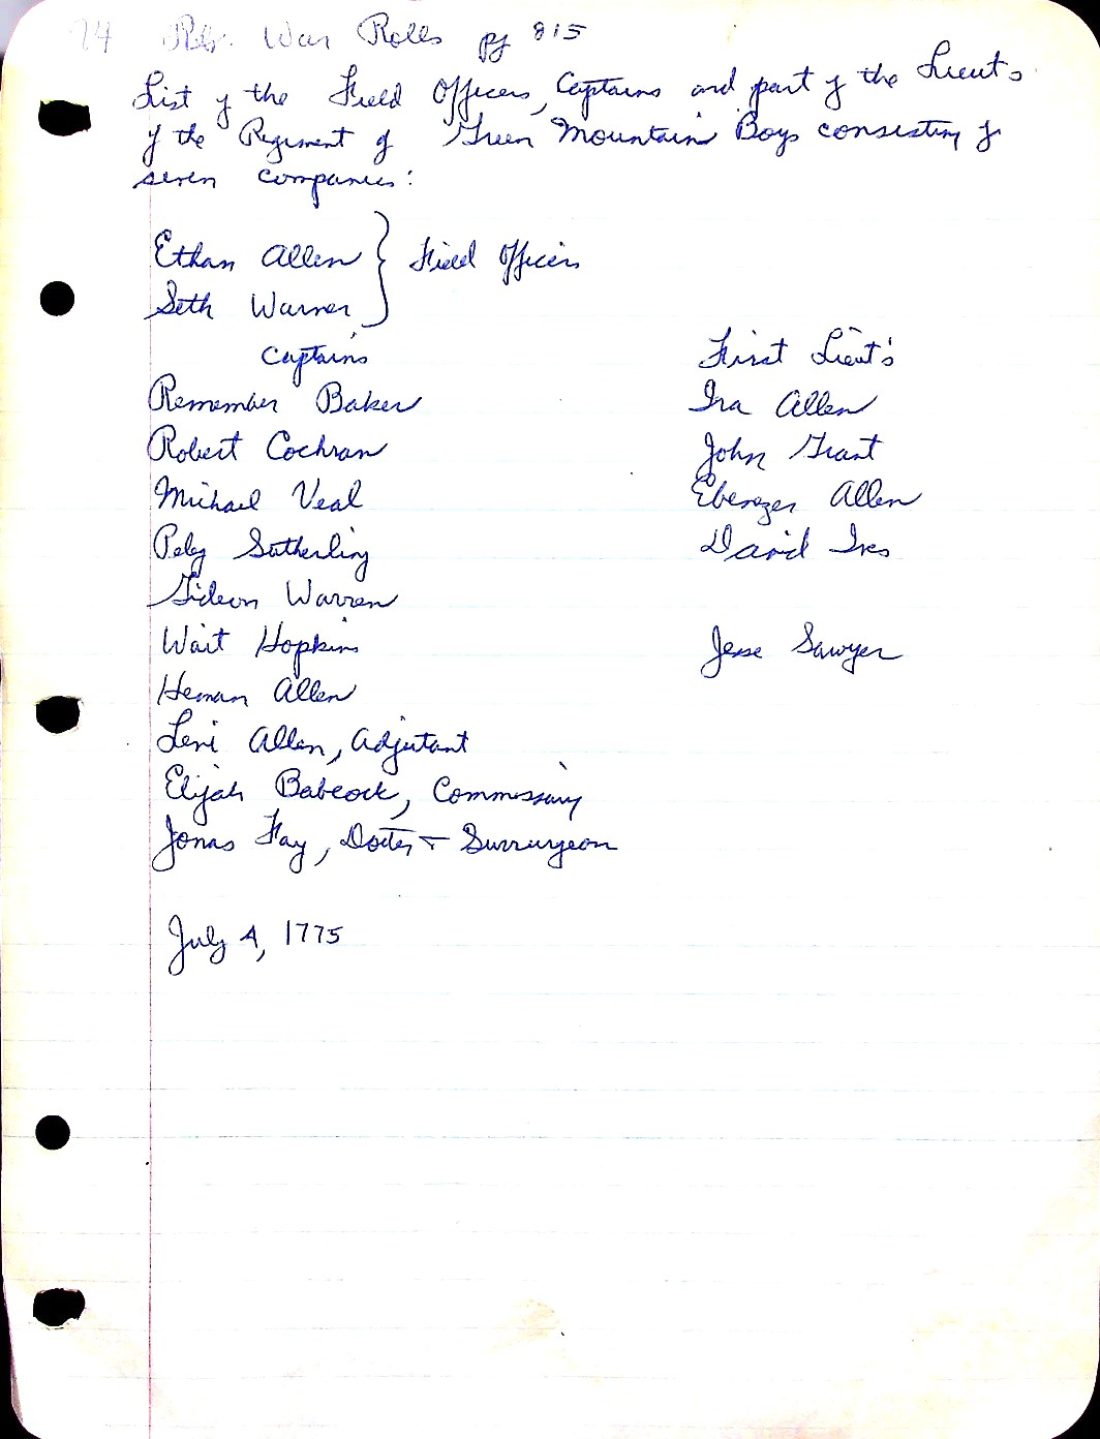 74 Rev. War Rolls pg 815
List of the Field Officers, Captains and part of the Lieut's
of the Regiment of Green Mountain Boys consisting of
seven companies:
Ethan Allen } Field Officers
Seth Warner
Captains First Lieut's
Remember Baker Ira Allen
Robert Cochran John Grant
Michael Veal Ebenezer Allen
Peleg Sutherling David Ives
Gideon Warren
Wait Hopkins Jesse Sawyer
Heman Allen
Levi Allen, Adjutant
Elijah Babcock, Commissary
Jonas Fay, Docter + Surrurgeon
July 4, 1775